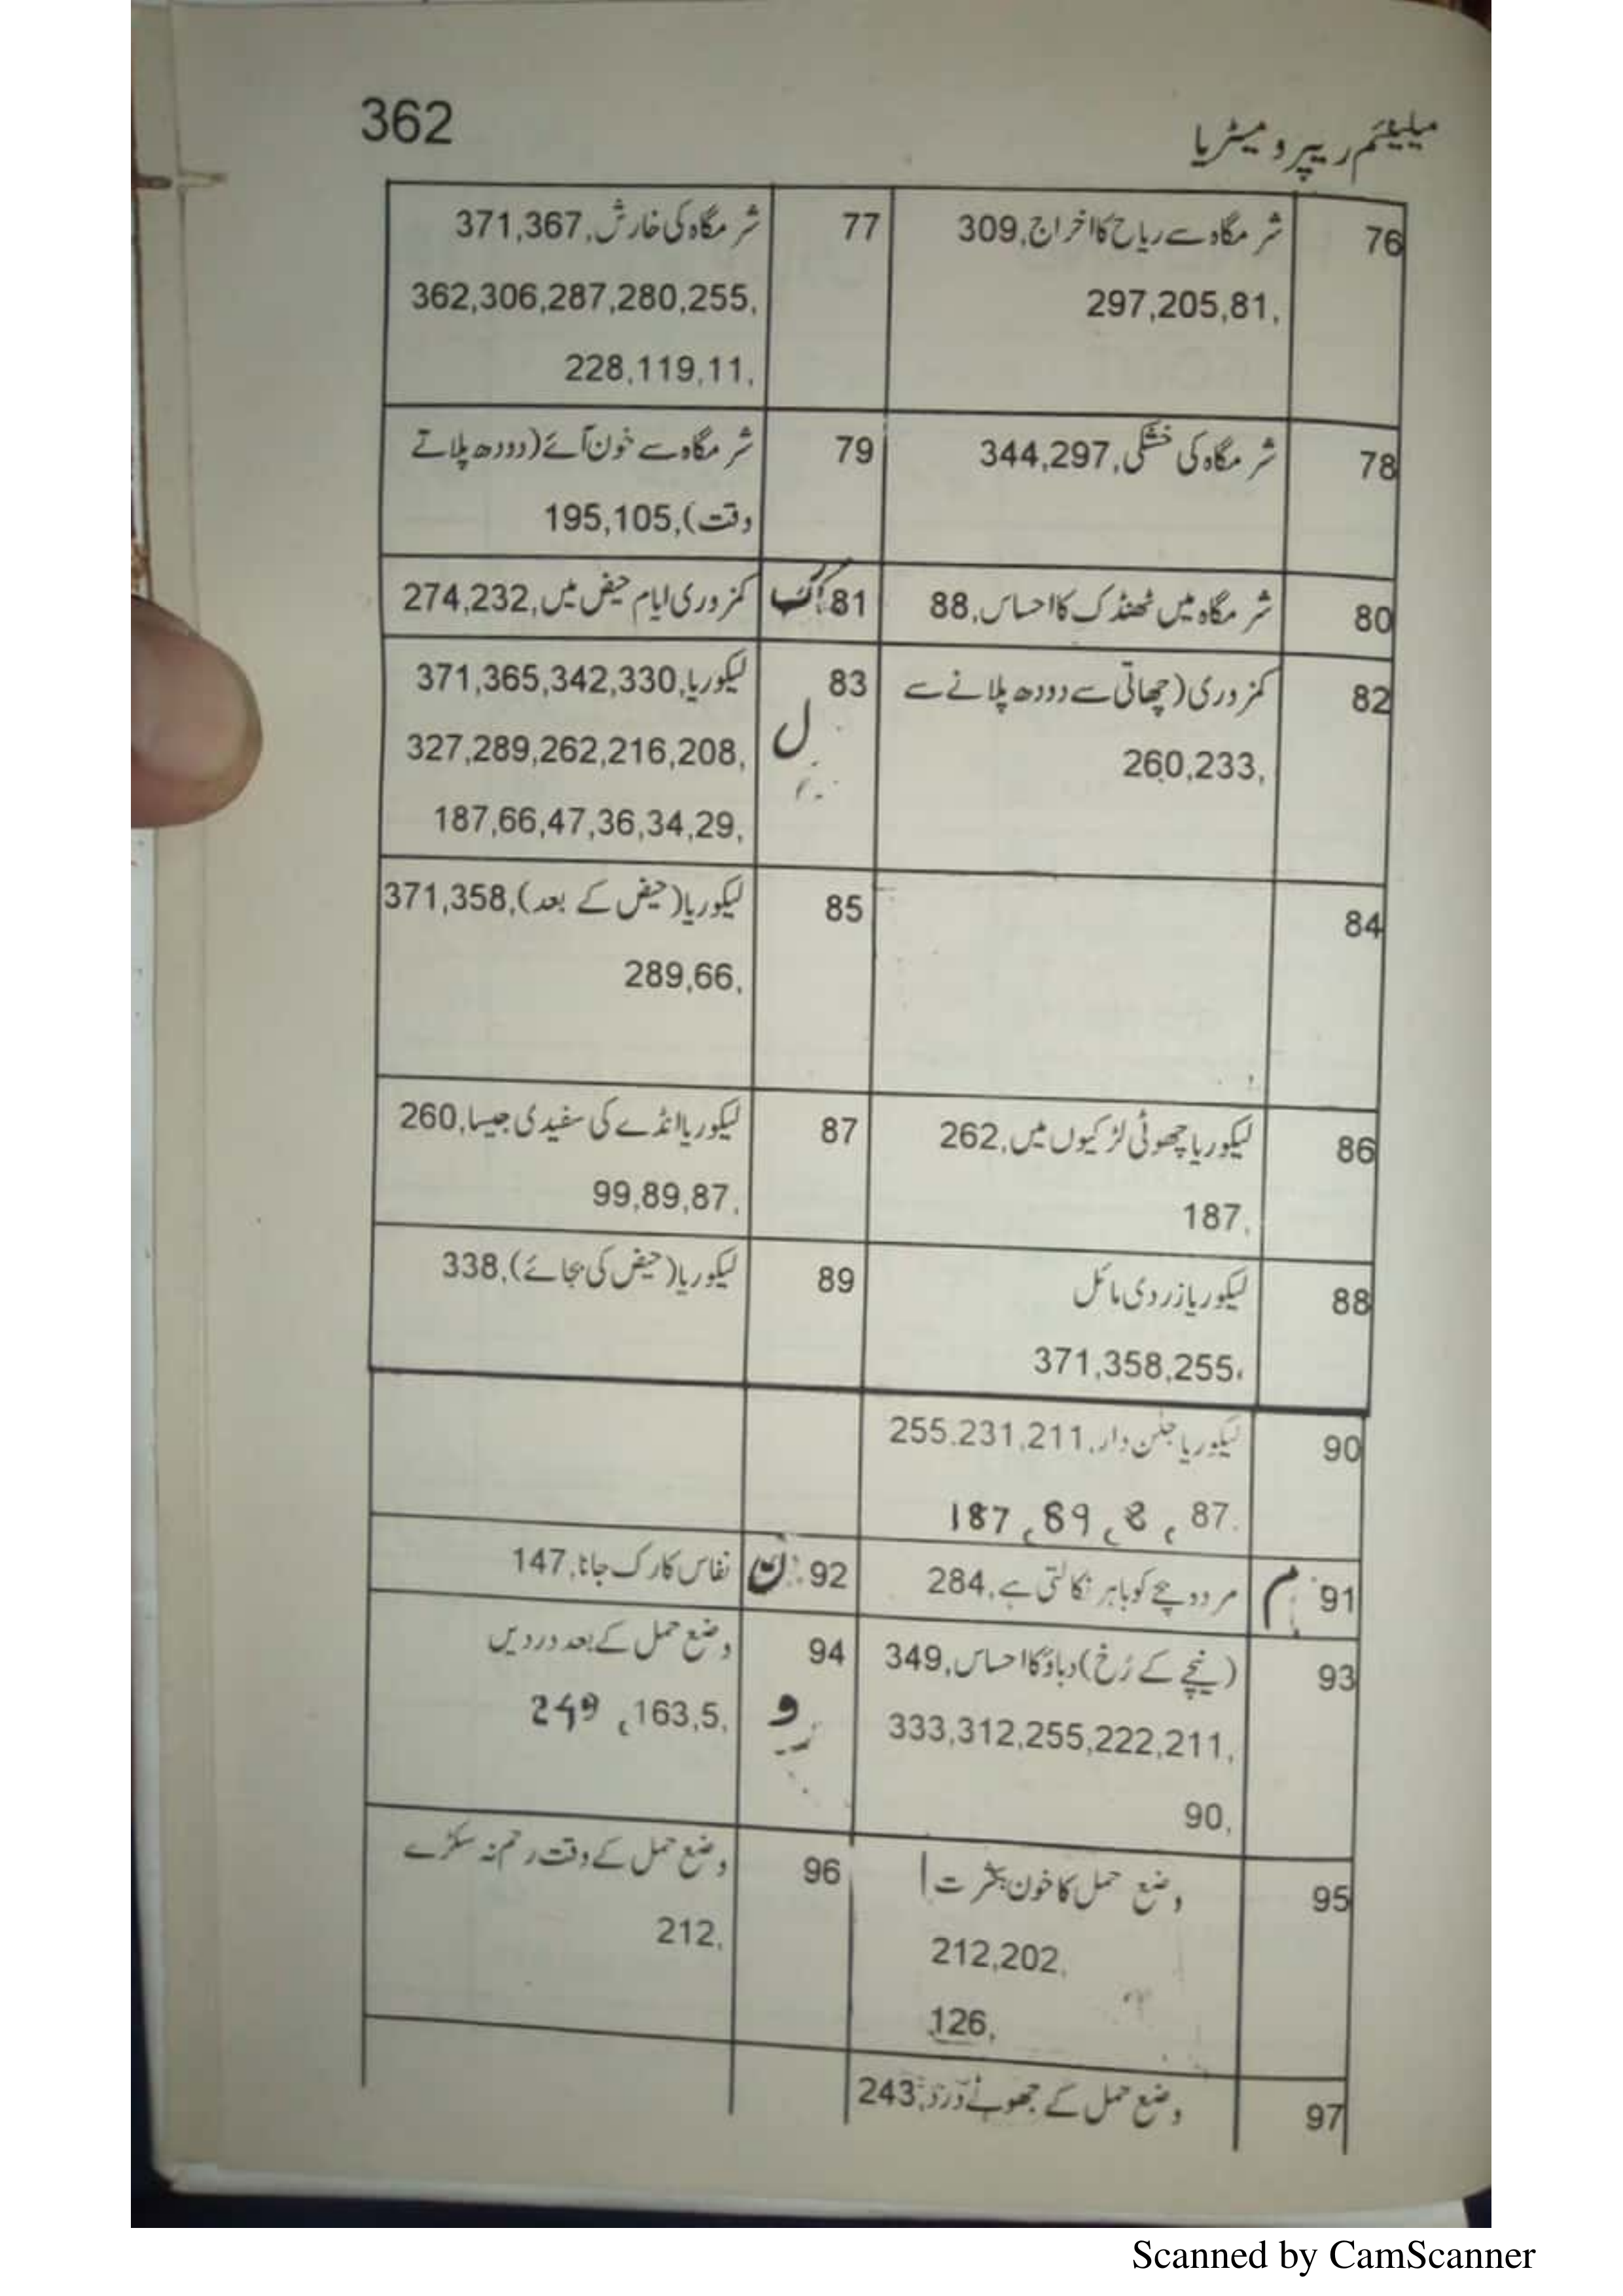 362
میلینیم ریپرومیٹریا
76
شرمگاہ سے ریاح کا اخراج,309
297,205,81,
77
شرمگاہ کی خارش,371,367
362,306,287,280,255,
228,119,11,
78
شرمگاہ کی خشکی,344,297
79
شرمگاہ سے خون آئے (دودھ پلاتے
وقت),195,105
80
شرمگاہ میں ٹھنڈک کا احساس,88
81 ک
کمزوری ایام حیض میں,274,232
82
کمزوری (چھاتی سے دودھ پلانے سے
260,233,
83
ل
لیکوریا,371,365,342,330
327,289,262,216,208,
187,66,47,36,34,29,
84
85
لیکوریا (حیض کے بعد),371,358
289,66,
86
لیکوریا چھوٹی لڑکیوں میں,262
187,
87
لیکوریا انڈے کی سفیدی جیسا,260
99,89,87,
88
لیکوریا زردی مائل
371,358,255,
89
لیکوریا (حیض کی بجائے),338
90
لیکوریا جلن دار,255,231,211
187, 89, 8, 87,
91 م
مردود بچے کو باہر نکالتی ہے,284
92 ن
نفاس کا رک جانا,147
93
(نیچے کے رُخ) دباؤ کا احساس,349
333,312,255,222,211,
90,
94
و
وضع حمل کے بعد دردیں
249, 163,5,
95
وضع حمل کا خون بکثرت
212,202,
126,
96
وضع حمل کے وقت رحم نہ سکڑے
212,
97
وضع حمل کے جھوٹے درد,243
Scanned by CamScanner